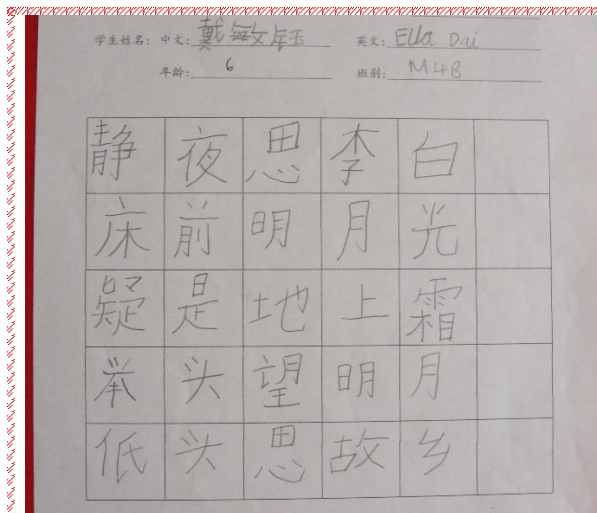 学生姓名: 中文: 戴敏钰 英文: Ella Dai
年龄: 6 班别: M4B
静夜思李白
床前明月光
疑是地上霜
举头望明月
低头思故乡